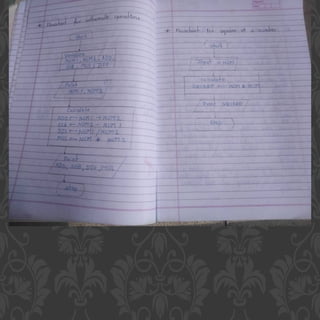 * Flowchart for arithmetic operations
Start
NUM1, NUM2, ADD,
SUB, MUL, DIV
Input
NUM1, NUM2
Calculate
ADD ← NUM1 + NUM2
SUB ← NUM1 - NUM2
DIV ← NUM1 / NUM2
MUL ← NUM1 * NUM2
Print
ADD, SUB, DIV, MUL
Stop
* Flowchart for square of a number
Start
Input NUM
Calculate
SQUARE ← NUM * NUM
Print SQUARE
Stop